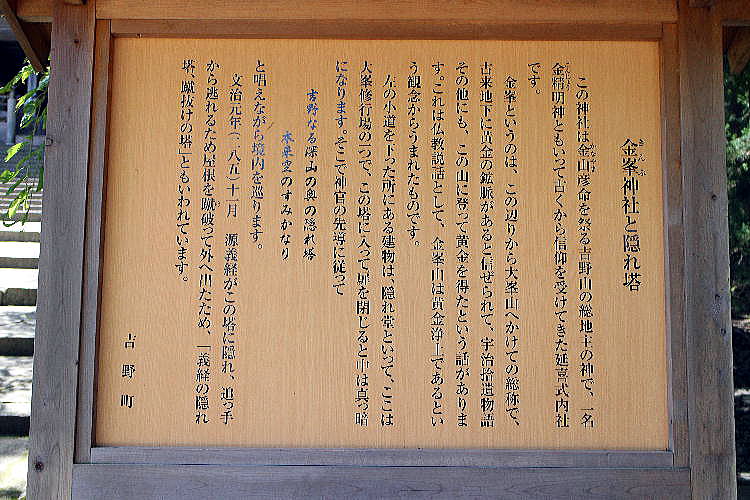 金峯神社と隠れ塔
この神社は金山彦命を祭る吉野山の総地主の神で、一名
金精明神ともいって古くから信仰を受けてきた延喜式内社
です。
金峯というのは、この辺りから大峯山へかけての総称で、
古来地下に黄金の鉱脈があると信ぜられて、宇治拾遺物語
その他にも、この山に登って黄金を得たという話がありま
す。これは仏教説話として、金峯山は黄金浄土であるとい
う観念からうまれたものです。
左の小道を下った所にある建物は、隠れ堂といって、ここは
大峯修行場の一つで、この塔に入って扉を閉じると中は真っ暗
になります。そこで神官の先導に従って
吉野なる深山の奥の隠れ塔
本来空のすみかなり
と唱えながら境内を巡ります。
文治元年(一一八五)十一月 源義経がこの塔に隠れ、追っ手
から逃れるため屋根を蹴破って外へ出たため、「義経の隠れ
塔、蹴抜けの塔」ともいわれています。
吉野町